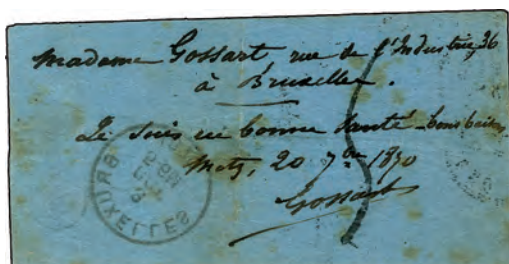 Madame Gossart rue de l'Industrie, 36
à Bruxelles.
Je suis en bonne santé - bons baisers
Metz, 20 7bre 1870
Gossart
BRUXELLES